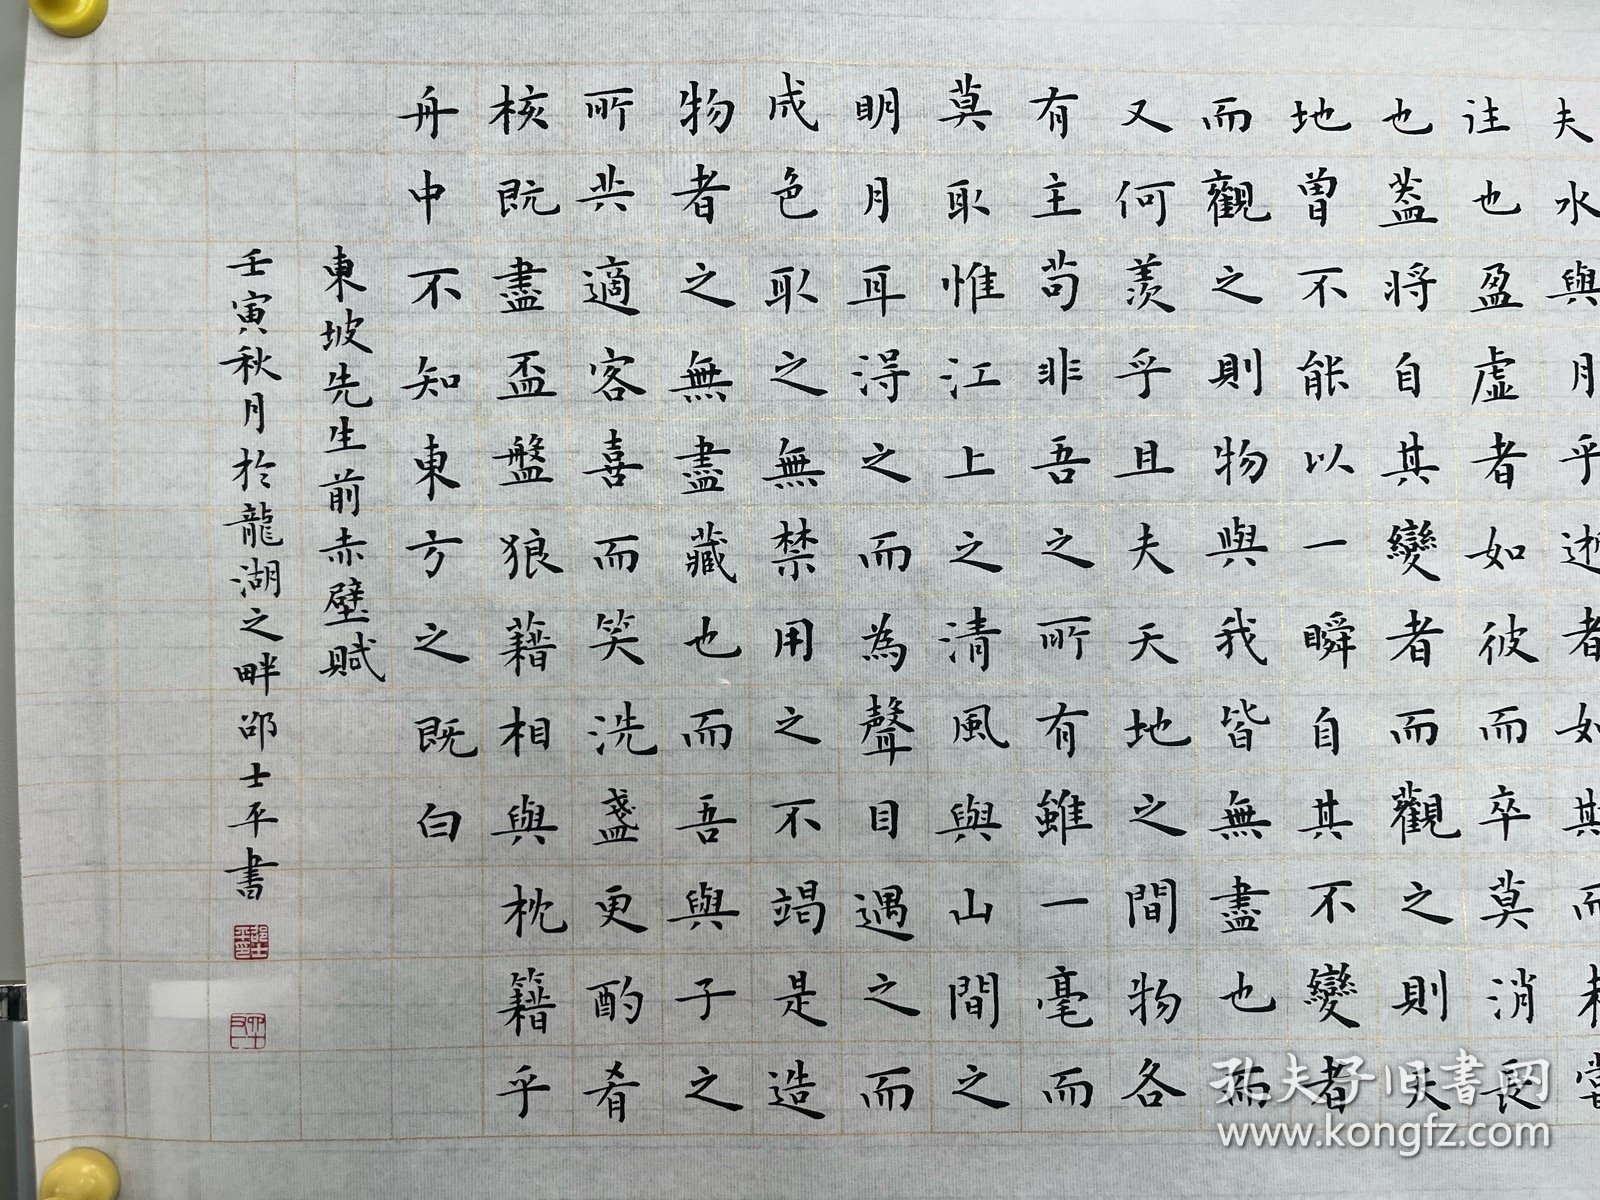 夫水與月乎逝者如斯而未嘗
往也盈虛者如彼而卒莫消長
也盖將自其變者而觀之則天
地曾不能以一瞬自其不變者
而觀之則物與我皆無盡也而
又何羨乎且夫天地之間物各
有主苟非吾之所有雖一毫而
莫取惟江上之清風與山間之
明月耳得之而為聲目遇之而
成色取之無禁用之不竭是造
物者之無盡藏也而吾與子之
所共適客喜而笑洗盞更酌肴
核既盡盃盤狼藉相與枕籍乎
舟中不知東方之既白
東坡先生前赤壁賦
壬寅秋月於龍湖之畔邵士平書
孔夫子旧书网
www.kongfz.com